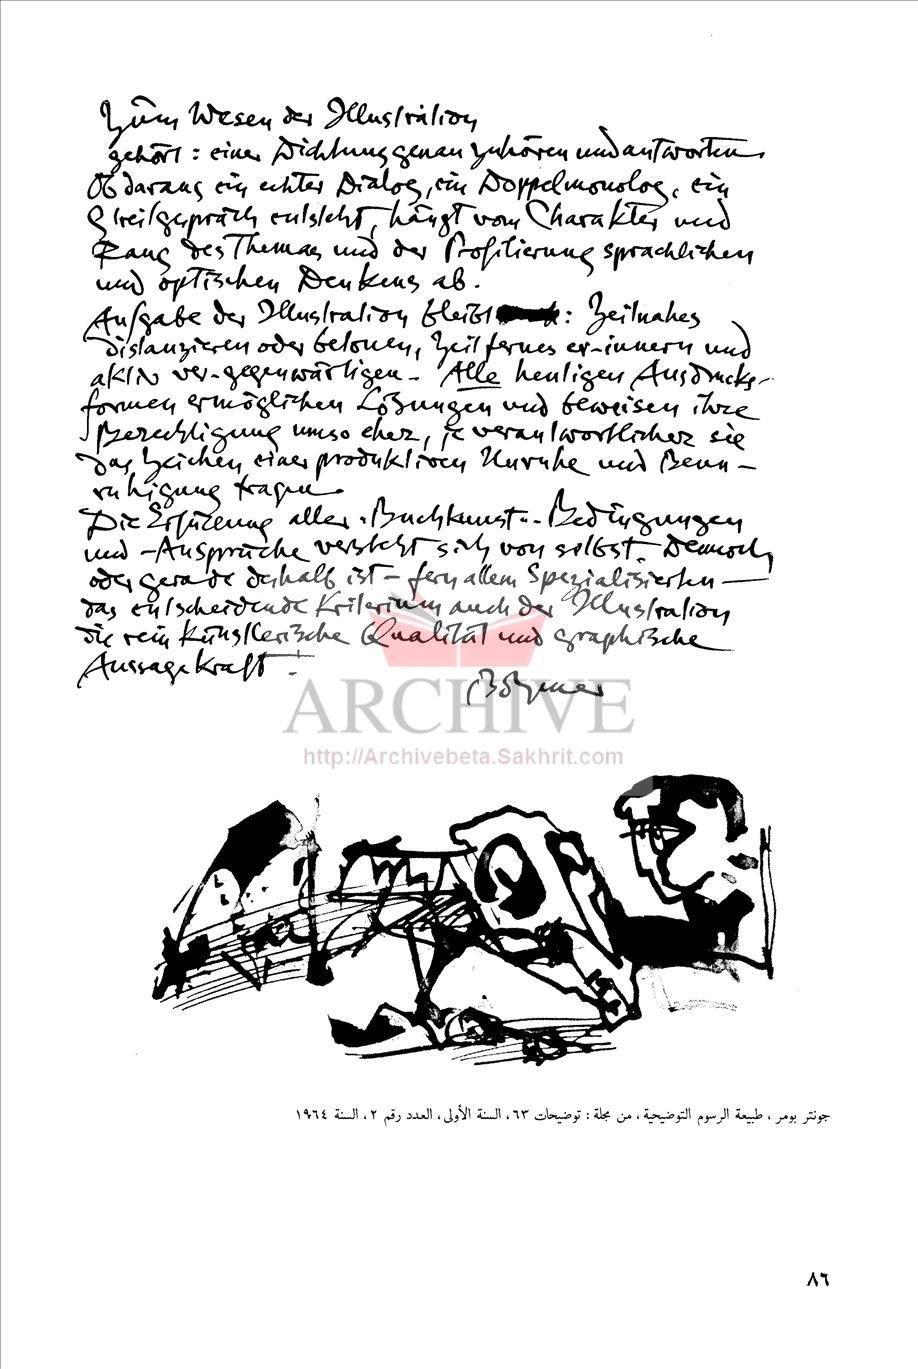 Zum Wesen der Illustration
gehört: einer Dichtung genau zuhören und antworten.
Ob daraus ein echter Dialog, ein Doppelmonolog, ein
Streitgespräch entsteht, hängt vom Charakter und
Rang des Themas und der Profilierung sprachlichen
und optischen Denkens ab.
Aufgabe der Illustration bleibt : Zeitnahes
distanzieren oder betonen, Zeitfernes er-innern und
aktiv ver-gegenwärtigen. Alle heutigen Ausdrucks-
formen ermöglichen Lösungen und beweisen ihre
Berechtigung umso eher, je verantwortlicher sie
das Zeichen einer produktiven Unruhe und Beun-
ruhigung tragen.
Die Erfüllung aller "Buchkunst"-Bedingungen
und -Ansprüche versteht sich von selbst. Dennoch
oder gerade deshalb ist – fern allem Spezialisierten –
das entscheidende Kriterium auch der Illustration
die rein künstlerische Qualität und graphische
Aussagekraft.
Böhmer
ARCHIVE
http://Archivebeta.Sakhrit.com
جونتر بومر ، طبيعة الرسوم التوضيحية ، من مجلة : توضيحات ٦٣ ، السنة الأولى ، العدد رقم ٢ ، السنة ١٩٦٤
٨٦